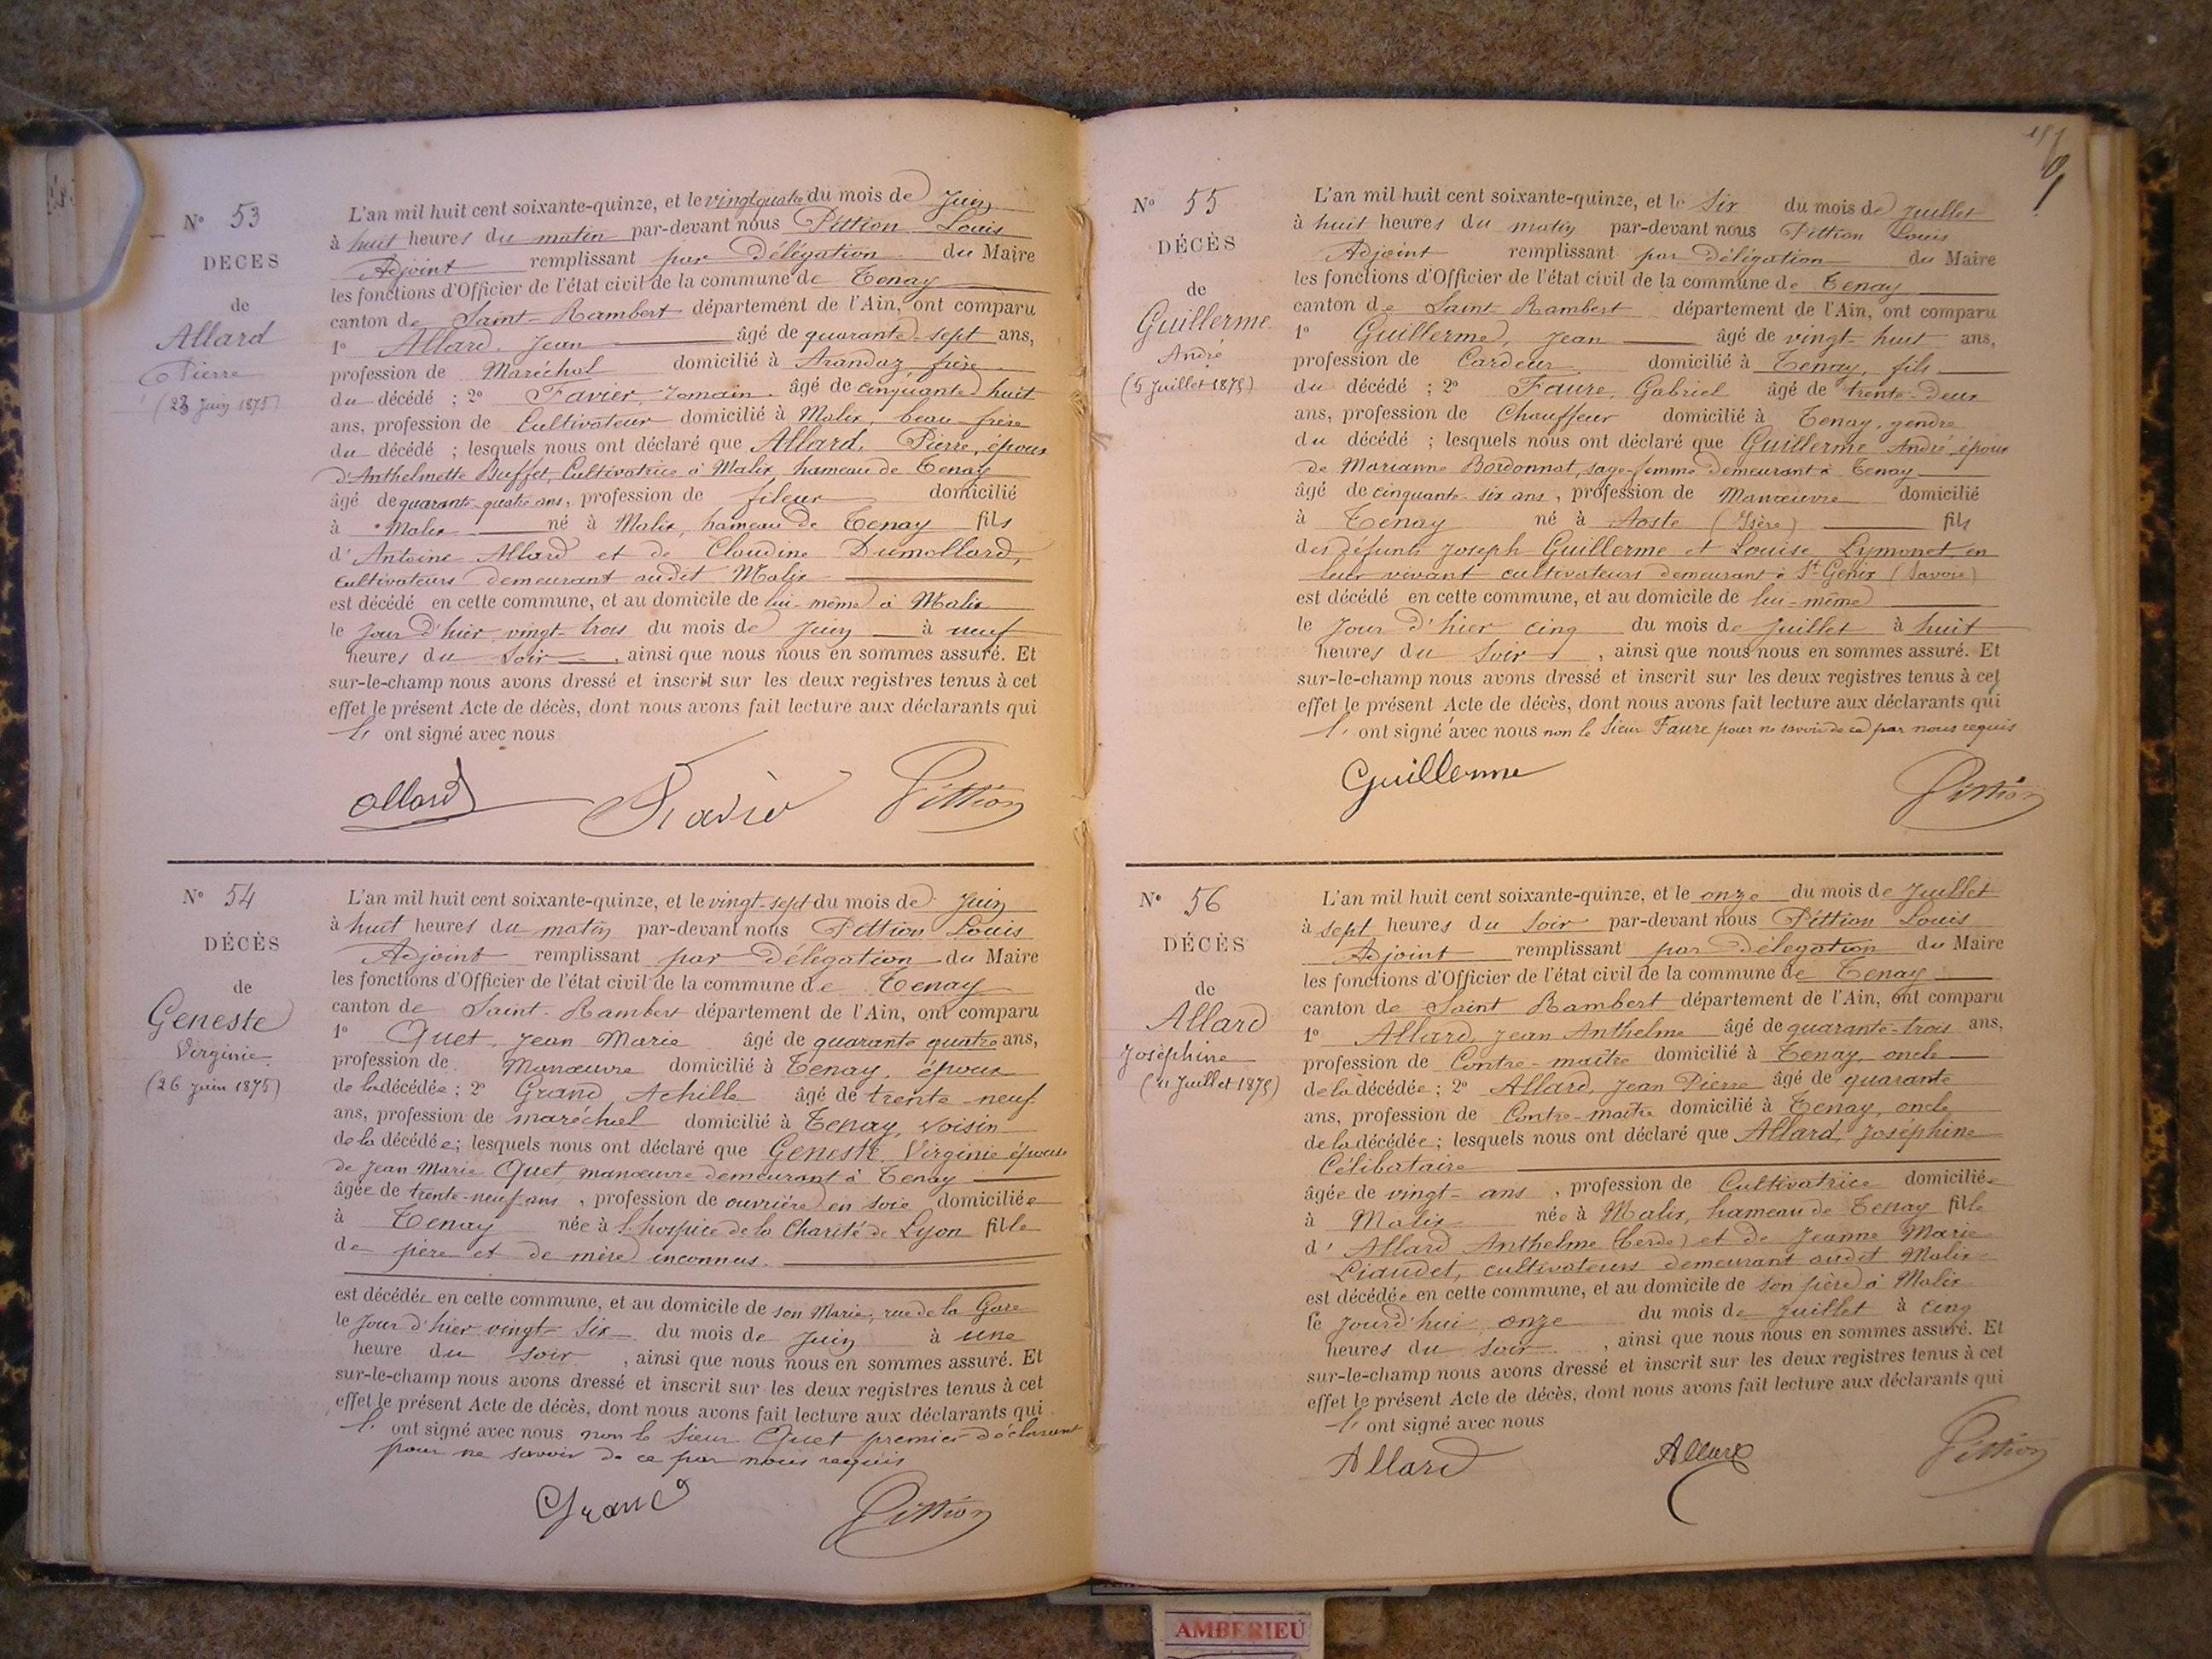 N° 53
DECES
de
Allard
Pierre
(23 Juin 1875)
L'an mil huit cent soixante-quinze, et le vingt quatre du mois de Juin
à huit heures du matin par-devant nous Pittion Louis
Adjoint remplissant par Délégation du Maire
les fonctions d'Officier de l'état civil de la commune de Tenay
canton de Saint-Rambert département de l'Ain, ont comparu
1° Allard, Jean âgé de quarante-sept ans,
profession de Maréchal domicilié à Arandaz, frère
du décédé ; 2° Favier, Romain. âgé de cinquante huit
ans, profession de Cultivateur domicilié à Malix, beau-frère
du décédé ; lesquels nous ont déclaré que Allard, Pierre, époux
d'Anthelmette Buffet, Cultivatrice à Malix, hameau de Tenay
âgé de quarante-quatre ans, profession de fileur domicilié
à Malix né à Malix, hameau de Tenay fils
d'Antoine Allard et de Claudine Dumollard,
cultivateurs demeurant audit Malix
est décédé en cette commune, et au domicile de lui-même à Malix
le jour d'hier vingt-trois du mois de Juin à neuf
heures du soir, ainsi que nous nous en sommes assuré. Et
sur-le-champ nous avons dressé et inscrit sur les deux registres tenus à cet
effet le présent Acte de décès, dont nous avons fait lecture aux déclarants qui
l' ont signé avec nous
allard Pittion
N° 54
DÉCÈS
de
Geneste
Virginie
(26 Juin 1875)
L'an mil huit cent soixante-quinze, et le vingt-sept du mois de Juin
à huit heures du matin par-devant nous Pittion Louis
Adjoint remplissant par Délégation du Maire
les fonctions d'Officier de l'état civil de la commune de Tenay
canton de Saint-Rambert département de l'Ain, ont comparu
1° Quet, Jean Marie âgé de quarante quatre ans,
profession de Manœuvre domicilié à Tenay, époux
de la décédée ; 2° Grand, Achille âgé de trente-neuf
ans, profession de maréchal domicilié à Tenay, voisin
de la décédée ; lesquels nous ont déclaré que Geneste Virginie épouse
de Jean Marie Quet, manœuvre demeurant à Tenay
âgée de trente-neuf ans, profession de ouvrière en soie domiciliée
à Tenay née à l'hospice de la Charité de Lyon fille
de père et de mère inconnus.
est décédée en cette commune, et au domicile de son Marie, rue de la Gare
le jour d'hier vingt-six du mois de Juin à une
heure du soir, ainsi que nous nous en sommes assuré. Et
sur-le-champ nous avons dressé et inscrit sur les deux registres tenus à cet
effet le présent Acte de décès, dont nous avons fait lecture aux déclarants qui
l' ont signé avec nous non le sieur Quet premier déclarant
pour ne savoir de ce par nous requis
Grand Pittion
N° 55
DÉCÈS
de
Guillerme
André
(5 Juillet 1875)
L'an mil huit cent soixante-quinze, et le six du mois de Juillet
à huit heures du matin par-devant nous Pittion Louis
Adjoint remplissant par Délégation du Maire
les fonctions d'Officier de l'état civil de la commune de Tenay
canton de Saint-Rambert département de l'Ain, ont comparu
1° Guillerme, Jean âgé de vingt-huit ans,
profession de Cardeur domicilié à Tenay, fils
du décédé ; 2° Faure, Gabriel âgé de trente-deux
ans, profession de Chauffeur domicilié à Tenay, gendre
du décédé ; lesquels nous ont déclaré que Guillerme André, époux
de Marianne Bordonnat, sage-femme demeurant à Tenay
âgé de cinquante-six ans, profession de Manœuvre domicilié
à Tenay né à Aoste (Isère) fils
des défunts Joseph Guillerme et Louise Lymonet en
leur vivant cultivateurs demeurant à St Genix (Savoie)
est décédé en cette commune, et au domicile de lui-même
le Jour d'hier cinq du mois de Juillet à huit
heures du soir, ainsi que nous nous en sommes assuré. Et
sur-le-champ nous avons dressé et inscrit sur les deux registres tenus à cet
effet le présent Acte de décès, dont nous avons fait lecture aux déclarants qui
l' ont signé avec nous non le Sieur Faure pour ne savoir de ce par nous requis
Guillerme Pittion
N° 56
DÉCÈS
de
Allard
Joséphine
(11 Juillet 1875)
L'an mil huit cent soixante-quinze, et le onze du mois de Juillet
à sept heures du soir par-devant nous Pittion Louis
Adjoint remplissant par Délégation du Maire
les fonctions d'Officier de l'état civil de la commune de Tenay
canton de Saint Rambert département de l'Ain, ont comparu
1° Allard, Jean Anthelme âgé de quarante-trois ans,
profession de Contre-maître domicilié à Tenay, oncle
de la décédée ; 2° Allard, Jean Pierre âgé de quarante
ans, profession de Contre-maître domicilié à Tenay, oncle
de la décédée ; lesquels nous ont déclaré que Allard, Joséphine
Célibataire
âgée de vingt- ans, profession de Cultivatrice domiciliée
à Malix née à Malix, hameau de Tenay fille
d'Allard Anthelme et de Jeanne Marie
Liaudet, cultivateurs demeurant audit Malix
est décédée en cette commune, et au domicile de son père à Malix
le jourd'hui onze du mois de Juillet à cinq
heures du soir, ainsi que nous nous en sommes assuré. Et
sur-le-champ nous avons dressé et inscrit sur les deux registres tenus à cet
effet le présent Acte de décès, dont nous avons fait lecture aux déclarants qui
l' ont signé avec nous
Allard Allard Pittion
AMBERIEU